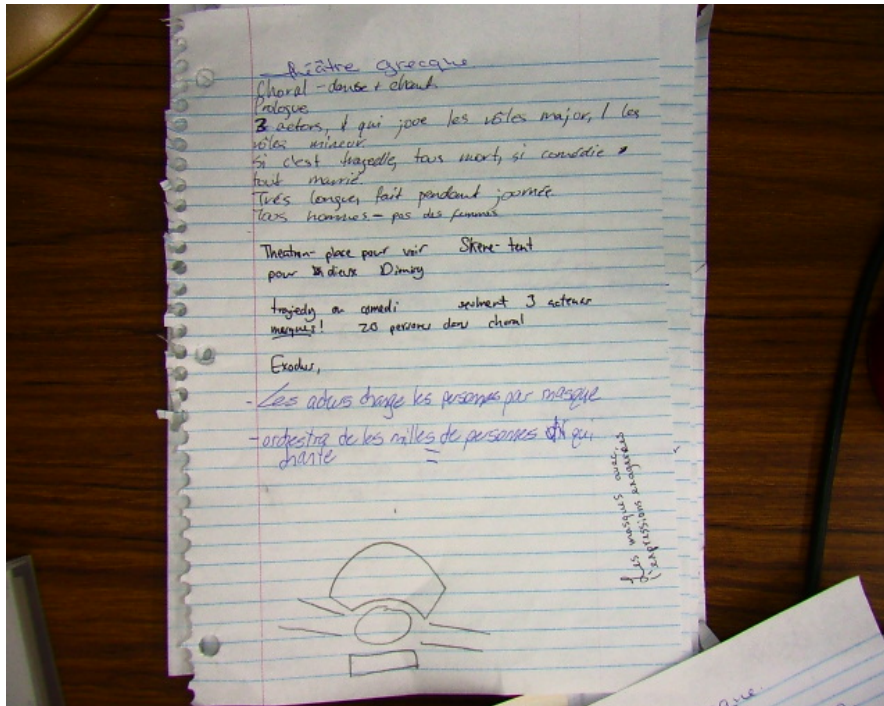 théâtre grecque
Choral - danse + chant
Prologue
3 actors, 1 qui joue les rôles major, 1 les
rôles mineur
Si c'est tragedie, tous mort, si comédie
tout marrié.
Trés longue, fait pendant journée.
Tous hommes - pas des femmes
Theatron- place pour voir Skene- tent
pour dieux
trajedy ou comedi seulment 3 acteurs
masques! 20 persones dans choral
Exodus,
- Les acteurs change les personnes par masque
- orchestra de les milles de personnes qui
chante
Les masques avec
l'expressions exagerées